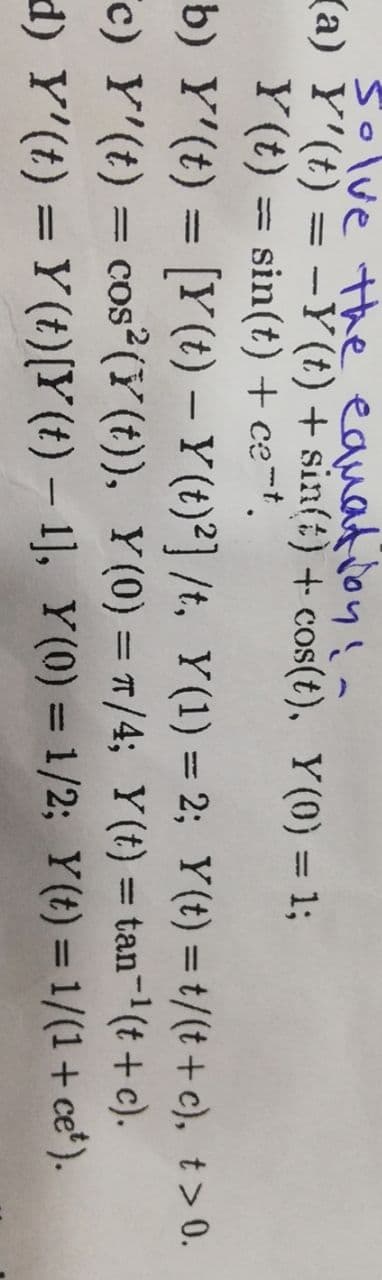 Solve the equation:-
(a) Y'(t) = −Y(t) + sin(t) + cos(t), Y(0) = 1;
Y(t) = sin(t) + ce⁻ᵗ.
b) Y'(t) = [Y(t) − Y(t)²]/t, Y(1) = 2; Y(t) = t/(t + c), t > 0.
c) Y'(t) = cos²(Y(t)), Y(0) = π/4; Y(t) = tan⁻¹(t + c).
d) Y'(t) = Y(t)[Y(t) − 1], Y(0) = 1/2; Y(t) = 1/(1 + ceᵗ).